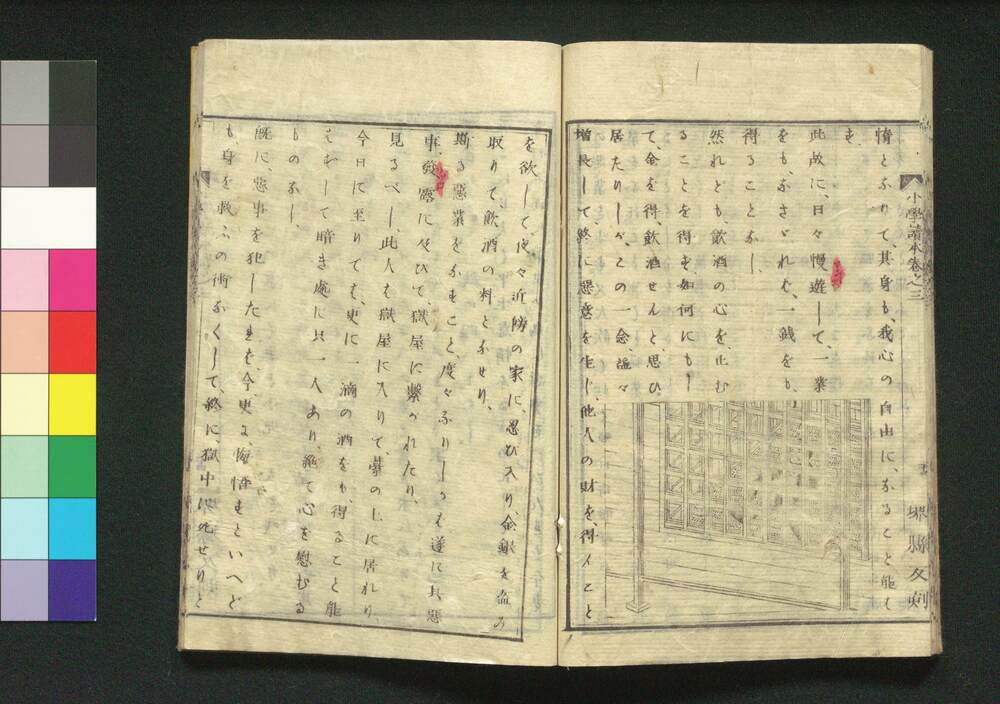 惰となりて、其身も、我心の自由に、なること能は
ず
此故に、日々慢遊して、一業
をも、なさゞれば、一銭をも、
得ることなし、
然れども、飲酒の心を止む
ることを得ず、如何にもし
て、金を得、飲酒せんと思ひ
居たりしが、この一念、漸々
増長して終に悪意を生じ、他人の財を、得んこと
を欲して、度々近隣の家に、忍び入り、金銀を盗み
取りて、飲酒の料となせり、
斯る悪業をなすこと、度々なりしかば遂に其悪
事、發露に及びて、獄屋に繋がれたり、
見るべし、此人も獄屋に入りて、藁の上に居れり
今日に至りては、更に一滴の酒をも、得ること能
はずして暗き處に只一人あり、絶て心を慰むる
ものなし、
既に、悪事を犯したれば、今更に、悔悟すといへど
も、身を救ふの術なくして、終に、獄中に死せりと
小學讀本巻之三
堺縣反刻